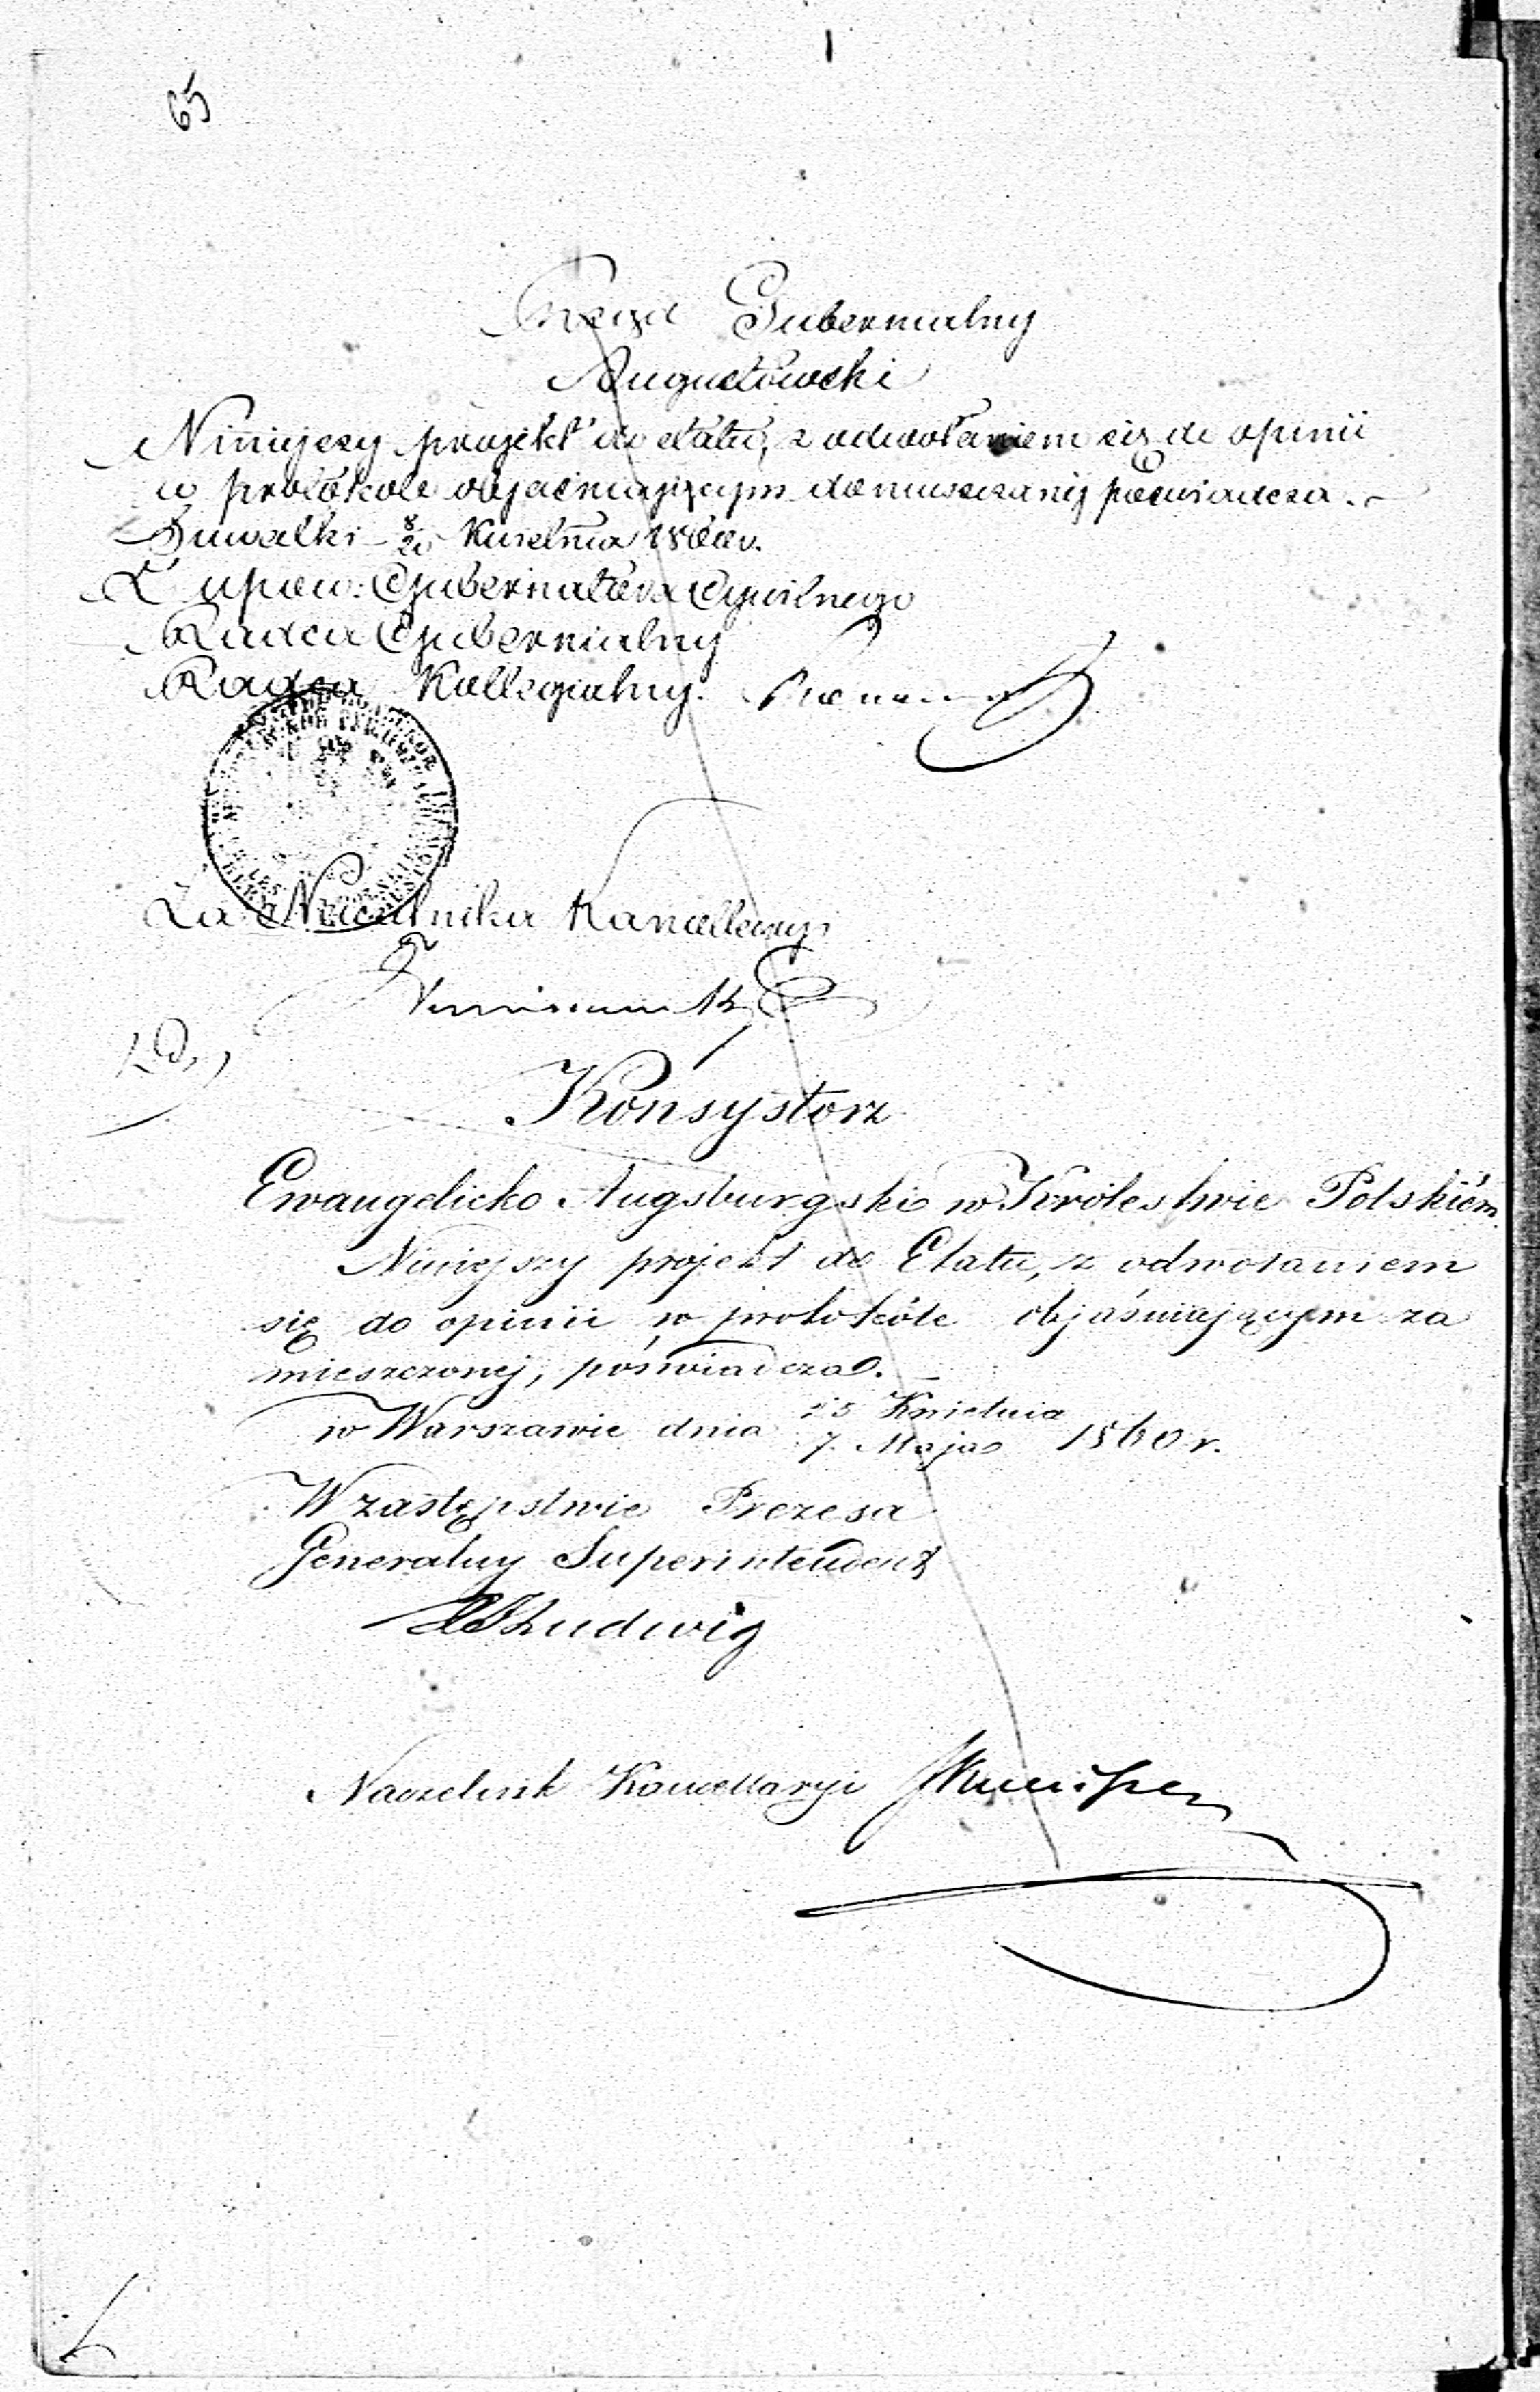 65
Rząd Gubernialny
Augustowski
Niniejszy projekt do etatu, z odwołaniem się do opinii
w protokole objaśniającym zamieszczonej poświadcza.
Suwałki 8/20 Kwietnia 1860 r.
Z upow: Gubernatora Cywilnego
Radca Gubernialny
Radca Kollegialny.
Za Naczelnika Kancellaryi
Konsystorz
Ewangelicko Augsburgski w Królestwie Polskiém
Niniejszy projekt do Etatu, z odwołaniem
się do opinii w protokóle objaśniającym za
mieszczonej, poświadcza.
w Warszawie dnia 25 Kwietnia / 7 Maja 1860 r.
W zastępstwie Prezesa
Generalny Superintendent
Ludwig
Naczelnik Kancellaryi